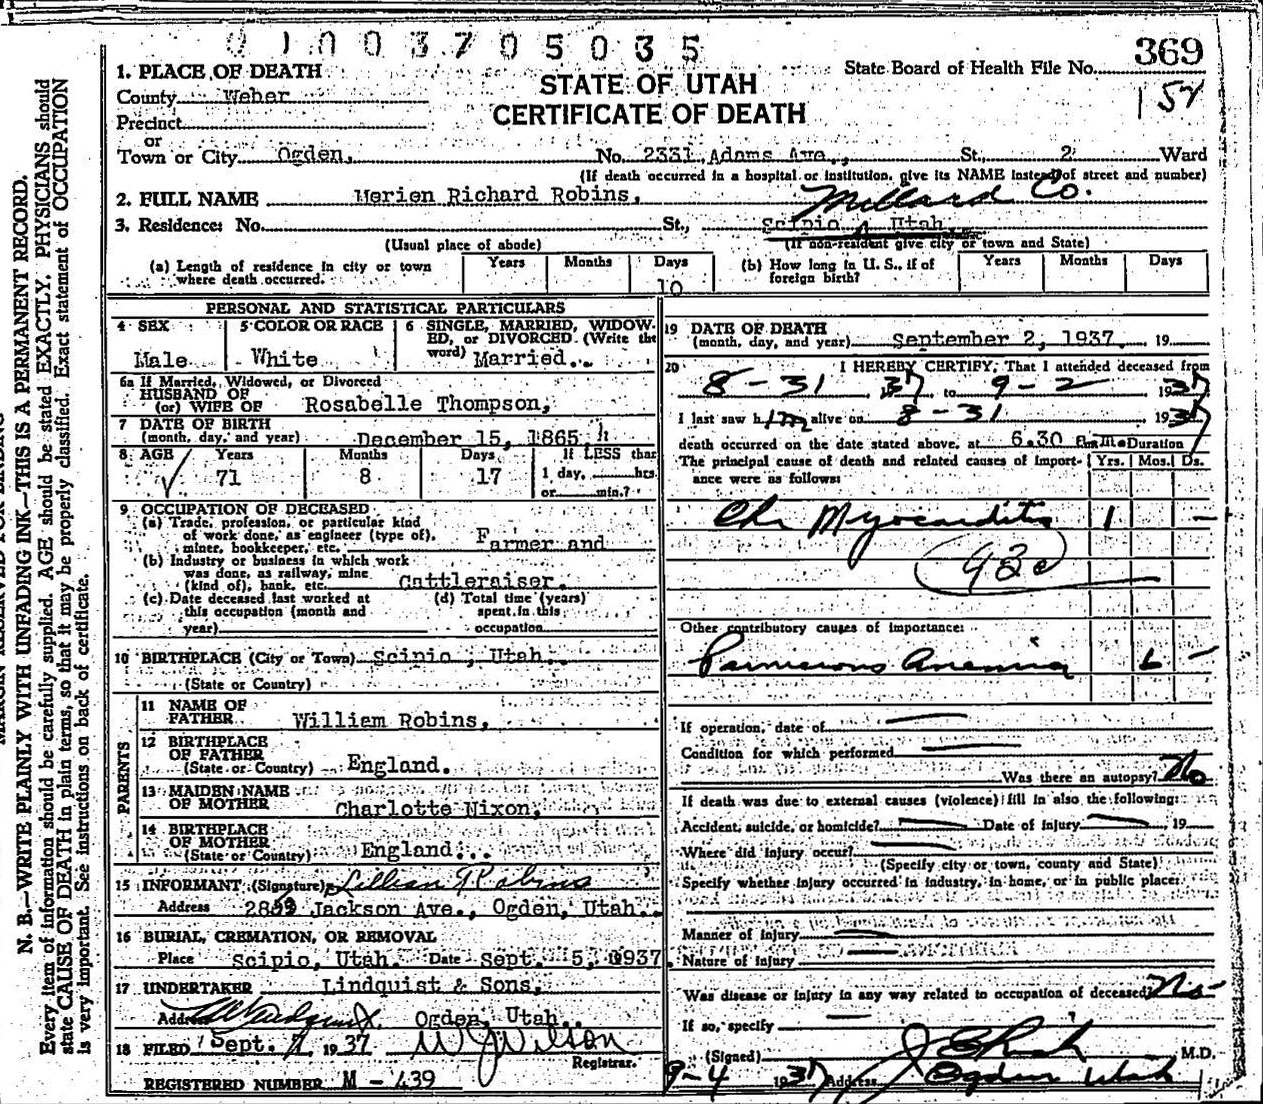 01003705035
State Board of Health File No. 369
157
STATE OF UTAH
CERTIFICATE OF DEATH
1. PLACE OF DEATH
County Weber
Precinct
or
Town or City Ogden, No. 2331 Adams Ave., St., 2 Ward
(If death occurred in a hospital or institution, give its NAME instead of street and number)
2. FULL NAME Merien Richard Robins, Millard Co.
3. Residence: No. St., Scipio, Utah.
(Usual place of abode) (If non-resident give city or town and State)
(a) Length of residence in city or town where death occurred. Years Months Days 10
(b) How long in U. S., if of foreign birth? Years Months Days
PERSONAL AND STATISTICAL PARTICULARS
4 SEX Male
5 COLOR OR RACE White
6 SINGLE, MARRIED, WIDOWED, or DIVORCED (Write the word) Married.
6a If Married, Widowed, or Divorced
HUSBAND OF
(or) WIFE OF Rosabelle Thompson,
7 DATE OF BIRTH
(month, day, and year) December 15, 1865
8 AGE Years 71 Months 8 Days 17 If LESS than 1 day, hrs. or min.?
9 OCCUPATION OF DECEASED
(a) Trade, profession, or particular kind
of work done, as engineer (type of),
miner, bookkeeper, etc. Farmer and
(b) Industry or business in which work
was done, as railway, mine
(kind of), bank, etc. Cattleraiser.
(c) Date deceased last worked at this occupation (month and year)
(d) Total time (years) spent in this occupation
10 BIRTHPLACE (City or Town) Scipio, Utah.
(State or Country)
PARENTS
11 NAME OF
FATHER William Robins,
12 BIRTHPLACE
OF FATHER
(State or Country) England.
13 MAIDEN NAME
OF MOTHER Charlotte Nixon,
14 BIRTHPLACE
OF MOTHER
(State or Country) England.
15 INFORMANT (Signature) Lillian G Robins
Address 2859 Jackson Ave., Ogden, Utah.
16 BURIAL, CREMATION, OR REMOVAL
Place Scipio, Utah. Date Sept. 5, 1937.
17 UNDERTAKER Lindquist & Sons,
Address Ogden, Utah.
18 FILED Sept. 7 1937 W J Wilson
Registrar.
REGISTERED NUMBER M-439
19 DATE OF DEATH
(month, day, and year) September 2, 1937. 19
20 I HEREBY CERTIFY, That I attended deceased from
8-31 37 to 9-2 1937
I last saw him alive on 8-31 1937
death occurred on the date stated above, at 6.30 a.m. Duration
The principal cause of death and related causes of importance were as follows: Yrs. Mos. Ds.
Chr Myocarditis 1 —
93c
Other contributory causes of importance:
Pernicious Anemia 6 —
If operation, date of —
Condition for which performed —
Was there an autopsy? No
If death was due to external causes (violence) fill in also the following:
Accident, suicide, or homicide? — Date of injury —, 19
Where did injury occur? —
(Specify city or town, county and State)
Specify whether injury occurred in industry, in home, or in public place:
Manner of injury —
Nature of injury —
Was disease or injury in any way related to occupation of deceased? No
If so, specify —
(Signed) M.D.
9-4 1937 Address Ogden Utah
N. B.—WRITE PLAINLY WITH UNFADING INK—THIS IS A PERMANENT RECORD.
Every item of information should be carefully supplied. AGE should be stated EXACTLY. PHYSICIANS should
state CAUSE OF DEATH in plain terms, so that it may be properly classified. Exact statement of OCCUPATION
is very important. See instructions on back of certificate.